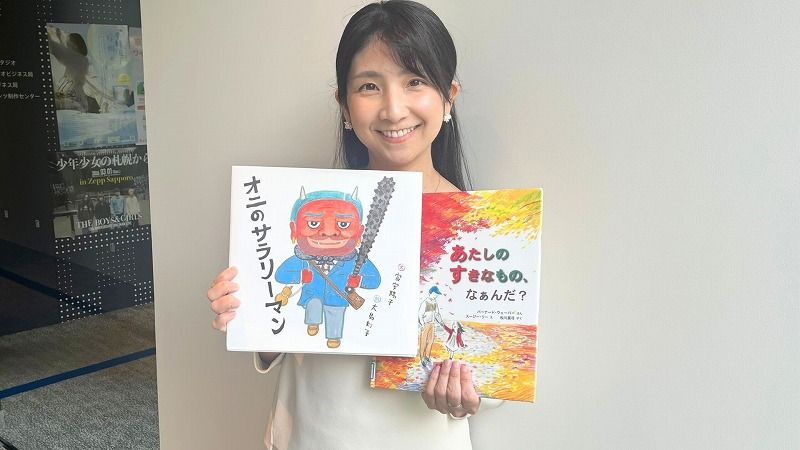 タジオ
オビジネス局
ネス局
ンツ制作センター
少年少女の札幌から
in Zepp Sapporo
THE BOYS&GIRLS
オニのサラリーマン
文 富安陽子
絵 大島妙子
あたしの
すきなもの、
なぁんだ?
バーナード・ウェーバー さく
スージー・リー え